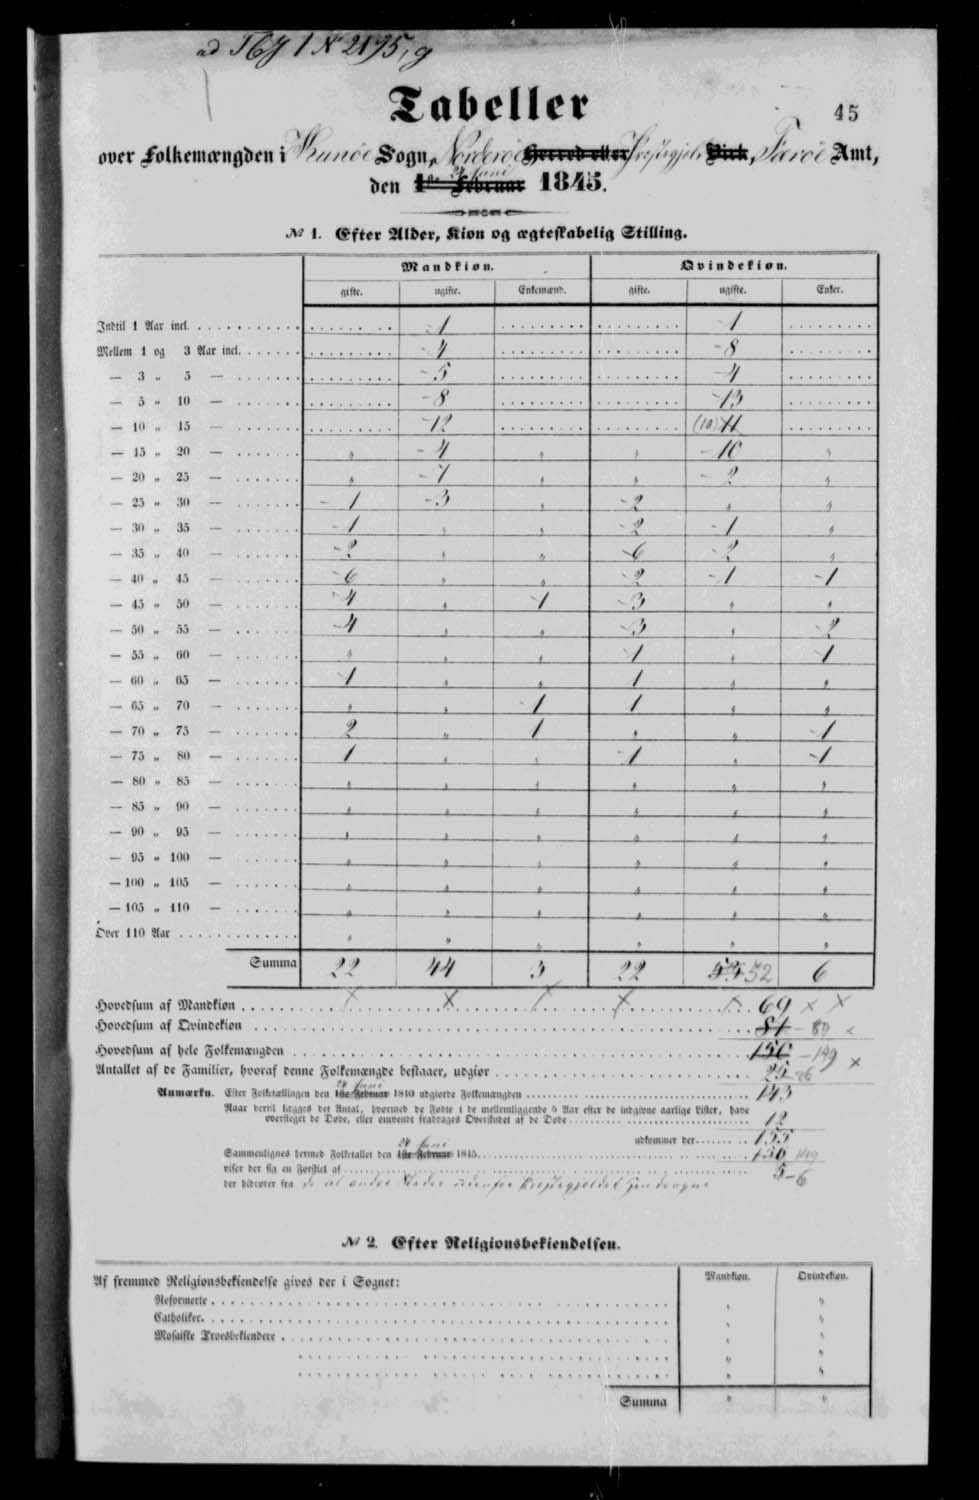 ad T6J 1 N 2195, g
Tabeller
45
over Folkemængden i Kunöe Sogn, Norderöe Herred eller Provstegjeld Birk, Færöe Amt,
den 1ste Februar 24 Juni 1845.
№ 1. Efter Alder, Kion og ægteskabelig Stilling.
Mandkion. Qvindekion.
gifte. ugifte. Enkemænd. gifte. ugifte. Enker.
Indtil 1 Aar incl. 1 1
Mellem 1 og 3 Aar incl. 4 8
— 3 „ 5 — 5 4
— 5 „ 10 — 8 13
— 10 „ 15 — 12 (10) 11
— 15 „ 20 — „ 4 „ „ 10 „
— 20 „ 25 — „ 7 „ „ 2 „
— 25 „ 30 — 1 3 „ 2 „ „
— 30 „ 35 — 1 „ „ 2 1 „
— 35 „ 40 — 2 „ „ 6 2 „
— 40 „ 45 — 6 „ „ 2 1 1
— 45 „ 50 — 4 „ 1 3 „ „
— 50 „ 55 — 4 „ „ 3 „ 2
— 55 „ 60 — „ „ „ 1 „ 1
— 60 „ 65 — 1 „ „ 1 „ „
— 65 „ 70 — „ „ 1 1 „ „
— 70 „ 75 — 2 „ 1 „ „ 1
— 75 „ 80 — 1 „ „ 1 „ 1
— 80 „ 85 — „ „ „ „ „ „
— 85 „ 90 — „ „ „ „ „ „
— 90 „ 95 — „ „ „ „ „ „
— 95 „ 100 — „ „ „ „ „ „
— 100 „ 105 — „ „ „ „ „ „
— 105 „ 110 — „ „ „ „ „ „
Over 110 Aar „ „ „ „ „ „
Summa 22 44 3 22 53 52 6
Hovedsum af Mandkion 69 × ×
Hovedsum af Qvindekion 81 - 80
Hovedsum af hele Folkemængden 150 - 149
Antallet af de Familier, hvoraf denne Folkemængde bestaaer, udgiør 25 26 ×
Anmærkn. Efter Folketællingen den 1ste Februar 24 Juni 1840 udgiorde Folkemængden 143
Naar dertil lægges det Antal, hvormed de Fødte i de mellemliggende 5 Aar efter de indgivne aarlige Lister, have
oversteget de Døde, eller omvendt fradrages Overskudet af de Døde 12
udkommer der 155
Sammenlignes hermed Folketallet den 1ste Februar 24 Juni 1845 150 149
viser der sig en Forskiel af 5 - 6
der hidrører fra de til andre Steder udenfor Provstegjeldet
№ 2. Efter Religionsbekiendelsen.
Af fremmed Religionsbekiendelse gives der i Sognet: Mandkion. Qvindekion.
Reformerte „ „
Catholiker „ „
Mosaiske Troesbekiendere „ „
„ „
„ „
Summa „ „